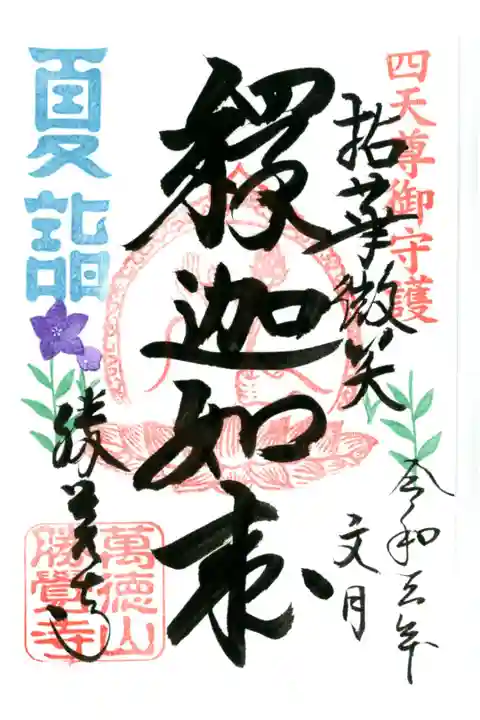 四天尊御守護
拈華微笑
令和三年
文月
釋迦如来
夏詣
勝覺寺
萬徳山
勝覺寺